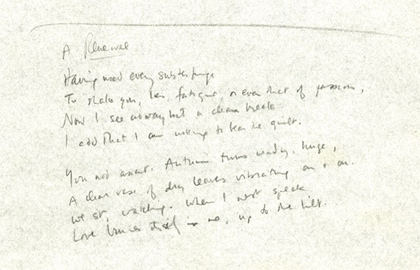 A Renewal
Having used every subterfuge
To shake you, lies, fatigue, or even that of passion,
Now I see no way but a clean break
I add that I am willing to bear the guilt.
You nod assent. Autumn turns windy, huge,
A clear vase of dry leaves vibrating on + on.
We sit, watching. When I next speak
Love buries itself in me, up to the hilt.